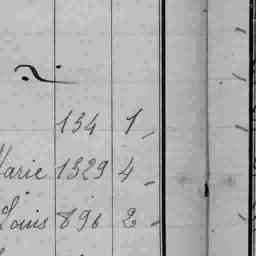 134 1
Marie 1329 4
Louis 896 2